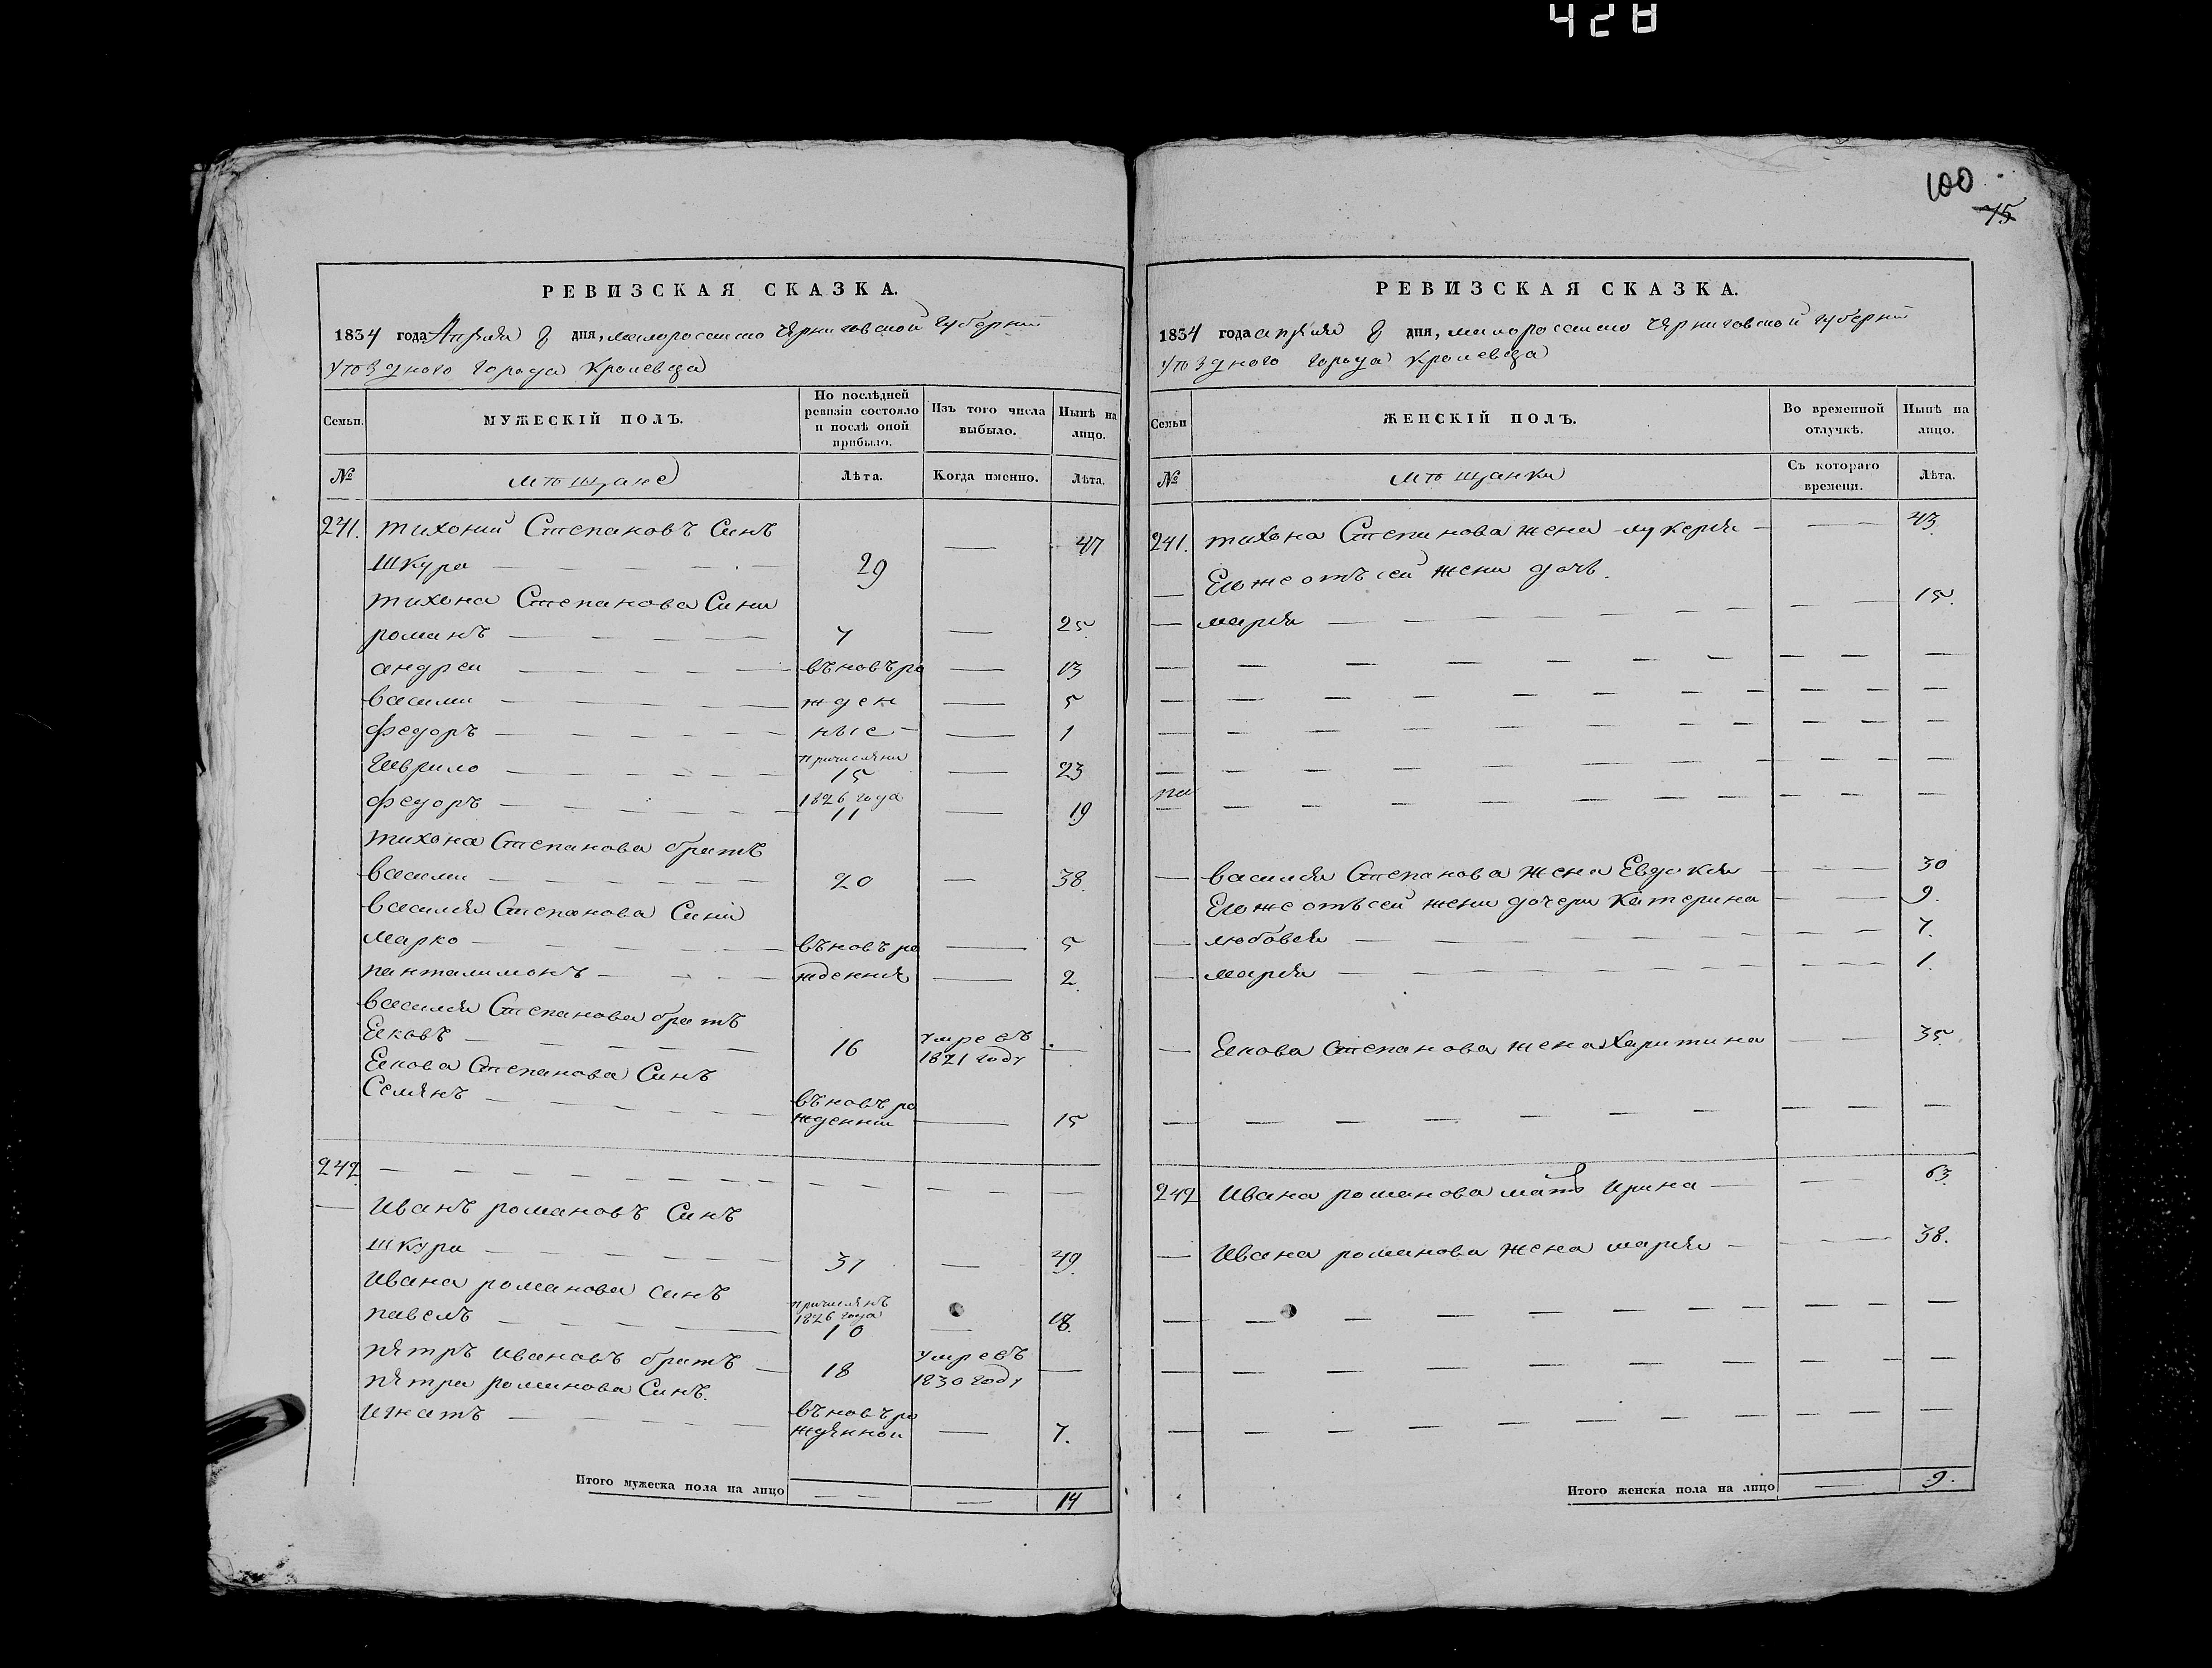 428
100
75
РЕВИЗСКАЯ СКАЗКА.
1834 года Апреля 8 дня, малоросийско Черниговской губернии
уѣздного города Кролевца
Семьи.
МУЖЕСКІЙ ПОЛЪ.
По послѣдней ревизіи состояло и послѣ оной прибыло.
Изъ того числа выбыло.
Нынѣ на лицо.
№
мѣщане
Лѣта.
Когда именно.
Лѣта.
241. тихоний Степановъ Синъ
шкура — 29 — 47
тихона Степанова Сини
романъ — 7 — 25
андреи — въновъро — 13
васили — жден — 5
федоръ — ные — 1
Гаврило — причисляни 15 — 23
федоръ — 1826 года 11 — 19
тихона Степанова братъ
васили — 20 — 38.
василия Степанова Сини
марко — въновъро — 5
панталимонъ — ждения — 2.
василия Степанова братъ
Еаковъ — 16 умревъ 1821 году —
Еакова Степанова Синъ
Семянъ — въновъро жденни — 15
242 —
— Иванъ романовъ Синъ
шкура — 31 — 49.
Ивана романова синъ
павелъ — причислянъ 1826 года 10 — 18.
пятръ ивановъ братъ — 18 умревъ 1830 году —
пятра романова Синъ.
игнатъ — въновъро ждянной — 7.
Итого мужеска пола на лицо — — 14
РЕВИЗСКАЯ СКАЗКА.
1834 года апреля 8 дня, малоросийско Черниговской губернии
уѣздного города Кролевца
Семьи
ЖЕНСКІЙ ПОЛЪ.
Во временной отлучкѣ.
Нынѣ на лицо.
№
мѣщанки
Съ котораго времени.
Лѣта.
241. тихона Степанова жена лукерия — — 43.
— Егоже отъ сеи жени дочъ.
— мария — — 15.
— василия Степанова жена Евдокия — — 30
Егоже отъ сеи жени дочери Катерина — — 9.
— любовия — — 7.
— мария — — 1.
— Еакова Степанова жена Харитина — — 35
242 Ивана романова мать Ирина — — 63.
— Ивана романова жена мария — — 38.
Итого женска пола на лицо — 9.